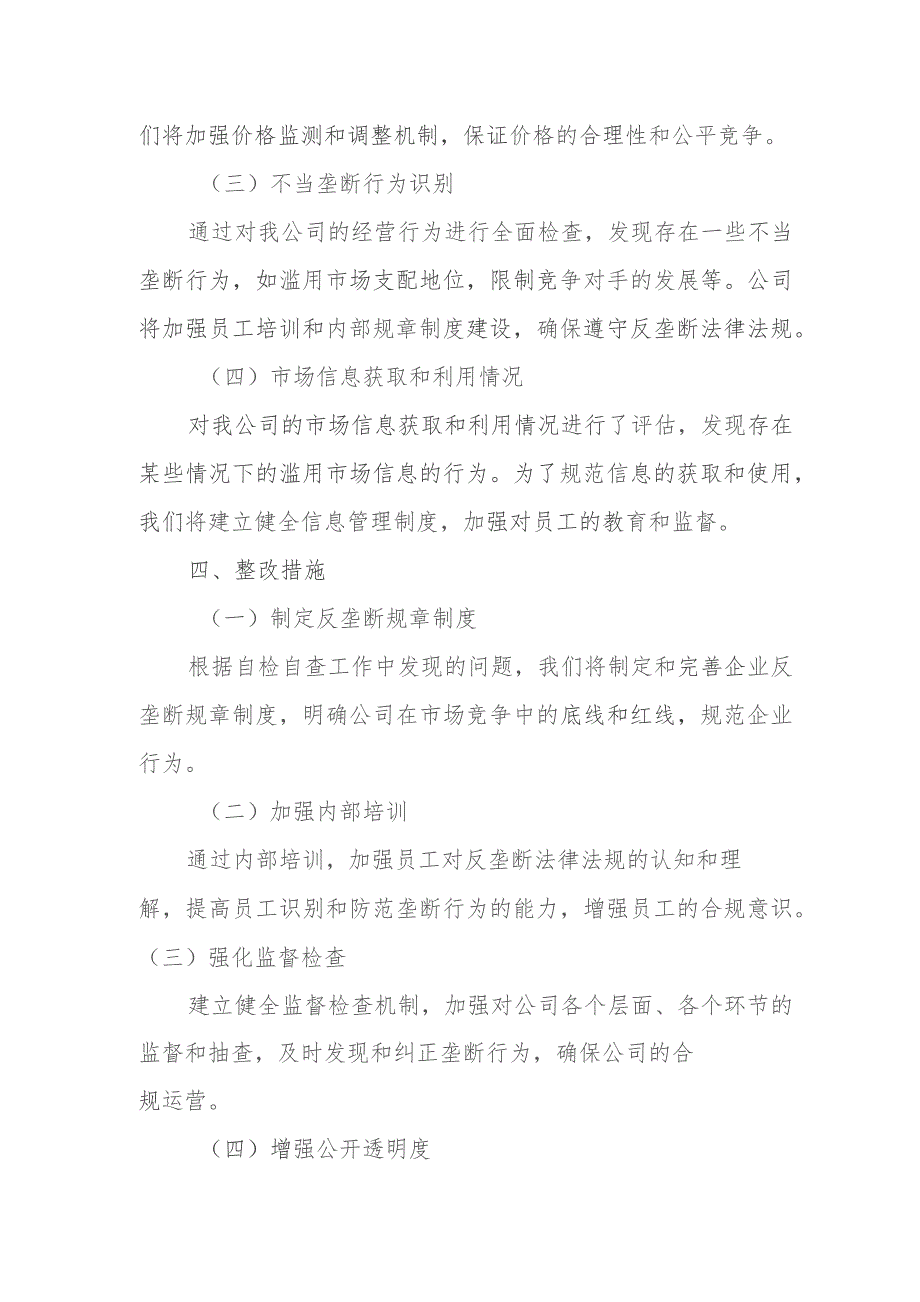 们将加强价格监测和调整机制，保证价格的合理性和公平竞争。
（三）不当垄断行为识别
通过对我公司的经营行为进行全面检查，发现存在一些不当
垄断行为，如滥用市场支配地位，限制竞争对手的发展等。公司
将加强员工培训和内部规章制度建设，确保遵守反垄断法律法规。
（四）市场信息获取和利用情况
对我公司的市场信息获取和利用情况进行了评估，发现存在
某些情况下的滥用市场信息的行为。为了规范信息的获取和使用，
我们将建立健全信息管理制度，加强对员工的教育和监督。
四、整改措施
（一）制定反垄断规章制度
根据自检自查工作中发现的问题，我们将制定和完善企业反
垄断规章制度，明确公司在市场竞争中的底线和红线，规范企业
行为。
（二）加强内部培训
通过内部培训，加强员工对反垄断法律法规的认知和理
解，提高员工识别和防范垄断行为的能力，增强员工的合规意识。
（三）强化监督检查
建立健全监督检查机制，加强对公司各个层面、各个环节的
监督和抽查，及时发现和纠正垄断行为，确保公司的合
规运营。
（四）增强公开透明度